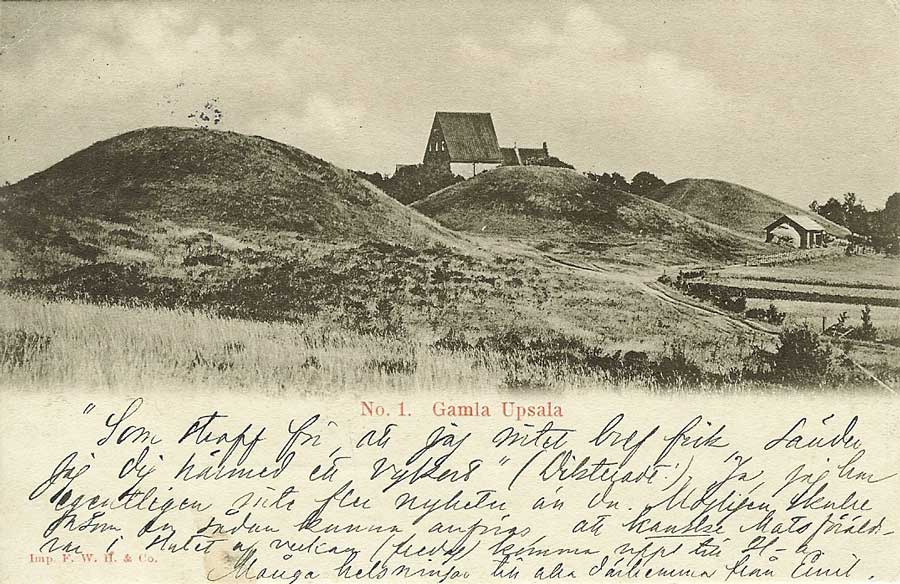 No. 1. Gamla Upsala
"Som straff för, att jag intet bref fick, sänder
jag dig härmed ett vykort" (Vikstedt!). Ja, jag har
egentligen inte fler nyheter än du. Möjligen skulle
såsom en sådan kunna anföras att kanske Mats föräld-
rar i slutet af veckan (fredag) komma upp till
Imp. F. W. H. & Co.
Många helsningar till alla därhemma från Emil